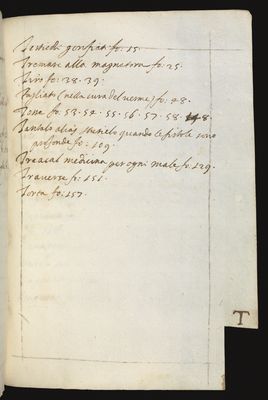 Testicoli gonfiati fo: 15.
Tremare alla magnatora fo: 25.
Tiro fo: 38. 39.
Tagliati (nella cura del verme) fo: 48.
Tone fo. 53. 54. 55. 56. 57. 58. 148.
Tantalo alias quando le fistole sono
profonde fo: 109.
medicina per ogni male fo: 129.
Traverse fo: 151.
Torta fo: 157.
T